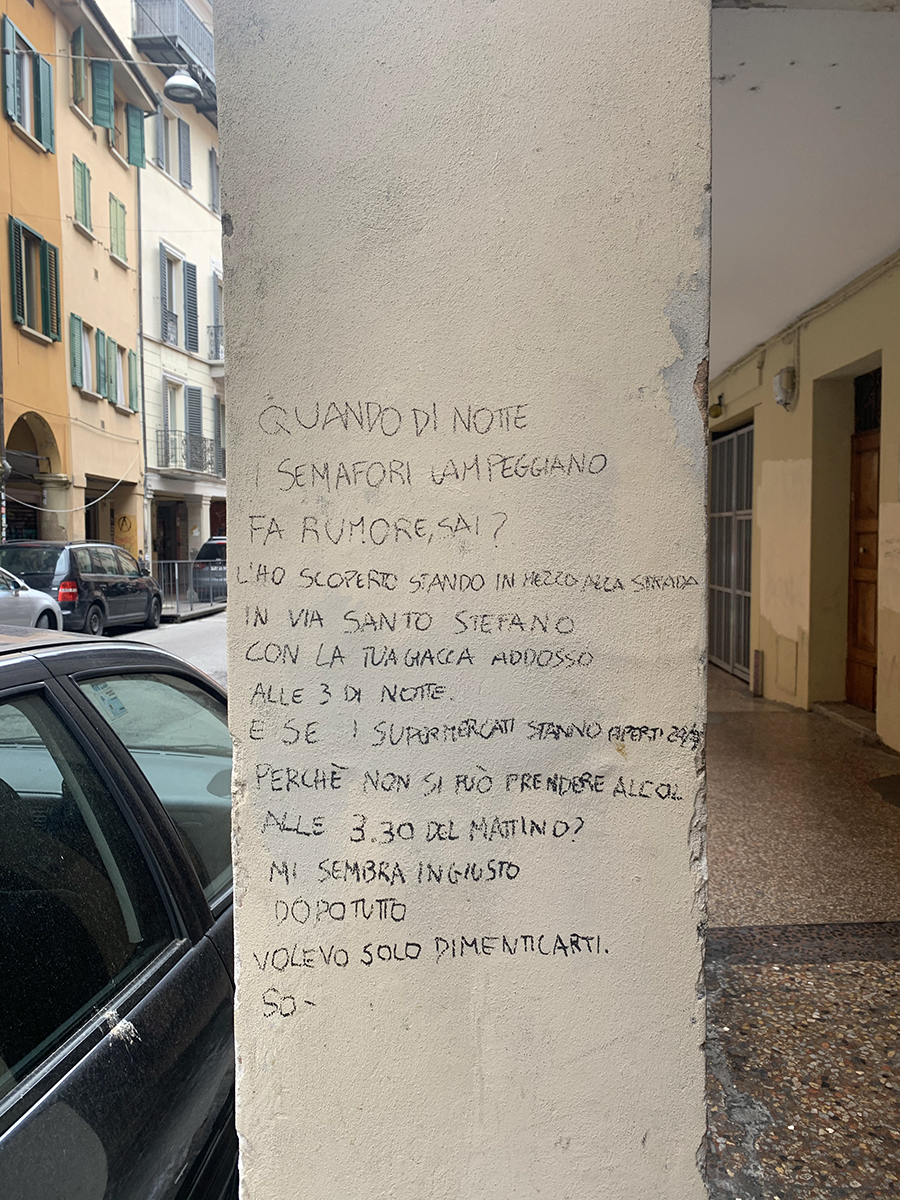 QUANDO DI NOTTE
I SEMAFORI LAMPEGGIANO
FA RUMORE, SAI?
L'HO SCOPERTO STANDO IN MEZZO ALLA STRADA
IN VIA SANTO STEFANO
CON LA TUA GIACCA ADDOSSO
ALLE 3 DI NOTTE.
E SE I SUPERMERCATI STANNO APERTI 24/h
PERCHÈ NON SI PUÒ PRENDERE ALCOL
ALLE 3.30 DEL MATTINO?
MI SEMBRA INGIUSTO
DOPOTUTTO
VOLEVO SOLO DIMENTICARTI.
SO-